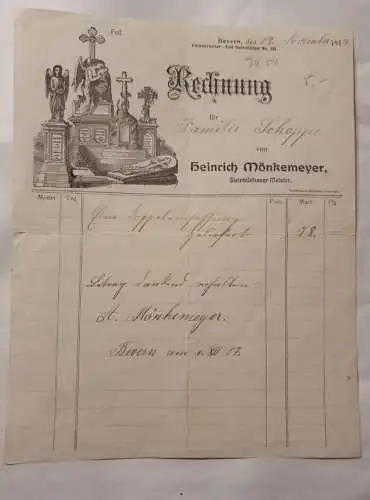 Fol.
Bevern, den 19. November 1917
Rechnung
5,-
für
Familie Schoppe
von
Heinrich Mönkemeyer,
Steinbildhauer-Meister.
Monat Tag Preis Mark Pfg
Eine Doppeleinfassung
geliefert 38.
Betrag dankend erhalten
H. Mönkemeyer.
Bevern am XII 17.